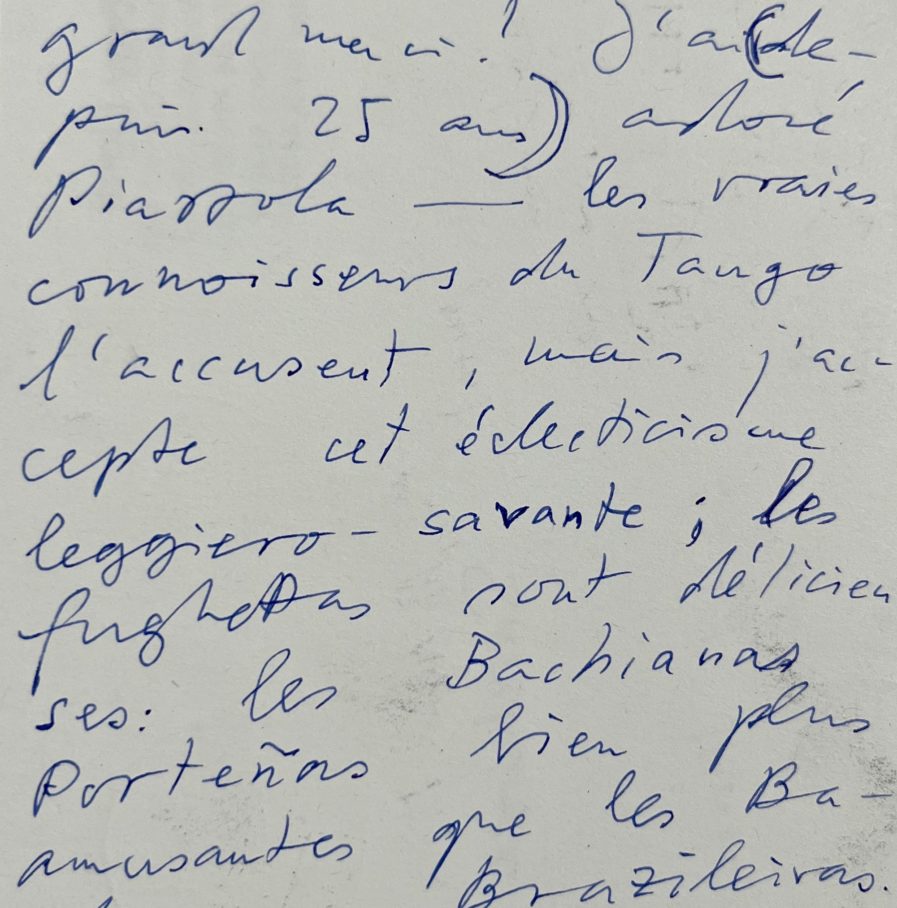 grand merci! J'ai (de-
puis 25 ans) adoré
Piazzola — les vraies
connoisseurs du Tango
l'accusent, mais j'ac-
cepte cet éclecticisme
leggiero-savante; les
fughettas sont délicieu
ses: les Bachianas
Porteñas bien plus
amusantes que les Ba-
Brazileiras.